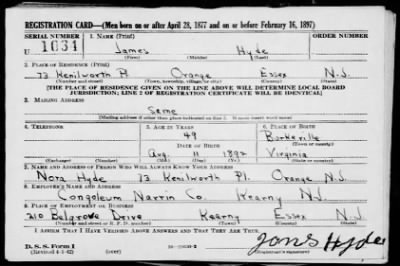 REGISTRATION CARD—(Men born on or after April 28, 1877 and on or before February 16, 1897)
SERIAL NUMBER 1. NAME (Print) ORDER NUMBER
U 1034 James Hyde
(First) (Middle) (Last)
2. PLACE OF RESIDENCE (Print)
73 Kenilworth Pl. Orange Essex N.J.
(Number and street) (Town, township, village, or city) (County) (State)
[THE PLACE OF RESIDENCE GIVEN ON THE LINE ABOVE WILL DETERMINE LOCAL BOARD
JURISDICTION; LINE 2 OF REGISTRATION CERTIFICATE WILL BE IDENTICAL]
3. MAILING ADDRESS
Same
(Mailing address if other than place indicated on line 2. If same insert word same)
4. TELEPHONE 5. AGE IN YEARS 6. PLACE OF BIRTH
49 Burkeville
DATE OF BIRTH (Town or county)
Aug. 11 1892 Virginia
(Exchange) (Number) (Mo.) (Day) (Yr.) (State or country)
7. NAME AND ADDRESS OF PERSON WHO WILL ALWAYS KNOW YOUR ADDRESS
Nora Hyde 73 Kenilworth Pl. Orange N.J.
8. EMPLOYER'S NAME AND ADDRESS
Congoleum Narrin Co. Kearny N.J.
9. PLACE OF EMPLOYMENT OR BUSINESS
210 Belgrove Drive Kearny Essex N.J.
(Number and street or R. F. D. number) (Town) (County) (State)
I AFFIRM THAT I HAVE VERIFIED ABOVE ANSWERS AND THAT THEY ARE TRUE.
D. S. S. Form 1
(Revised 4-1-42) (over) Hyde